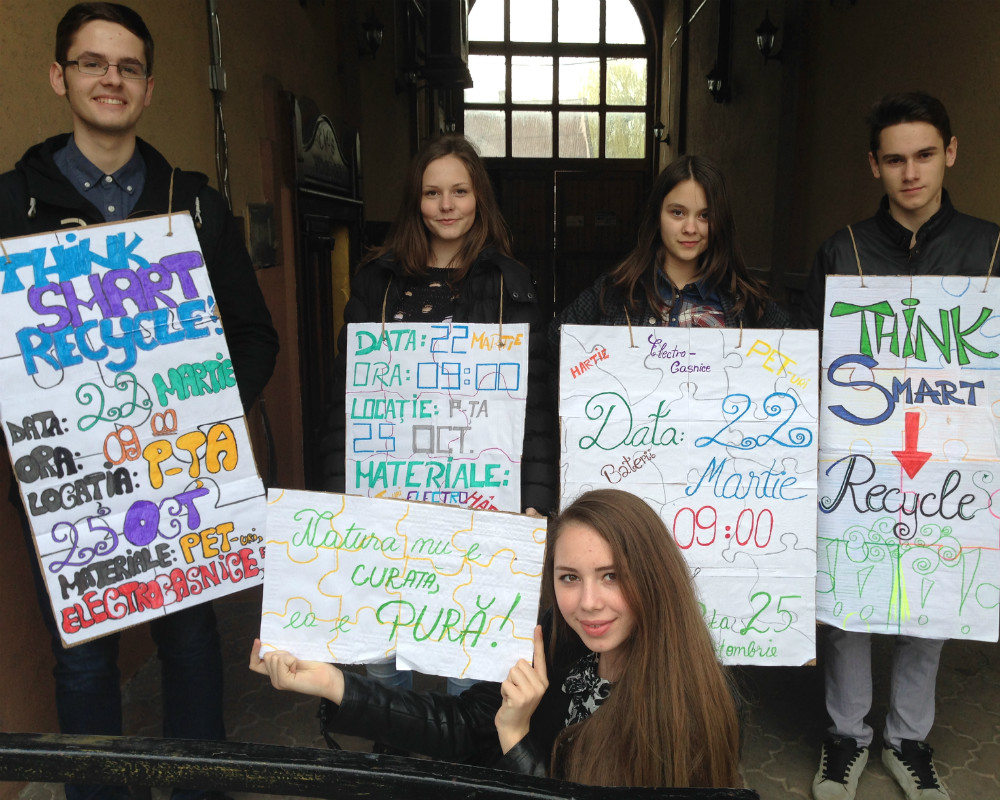 THINK
SMART
RECYCLE!
DATA: 22 MARTIE
ORA: 09:00
LOCAȚIA: P-TA
25 OCT
MATERIALE: PET-uri,
ELECTROCASNICE,
DATA: 22 MARTIE
ORA: 09:00
LOCAȚIE: P-TA
25 OCT.
MATERIALE:
ELECTRO
HÂRTIE
Electro-
Casnice
PET-uri
Data: 22
Baterii
Martie
09:00
25
THINK
SMART
Recycle
Natura nu e
CURATA,
ea e PURĂ!